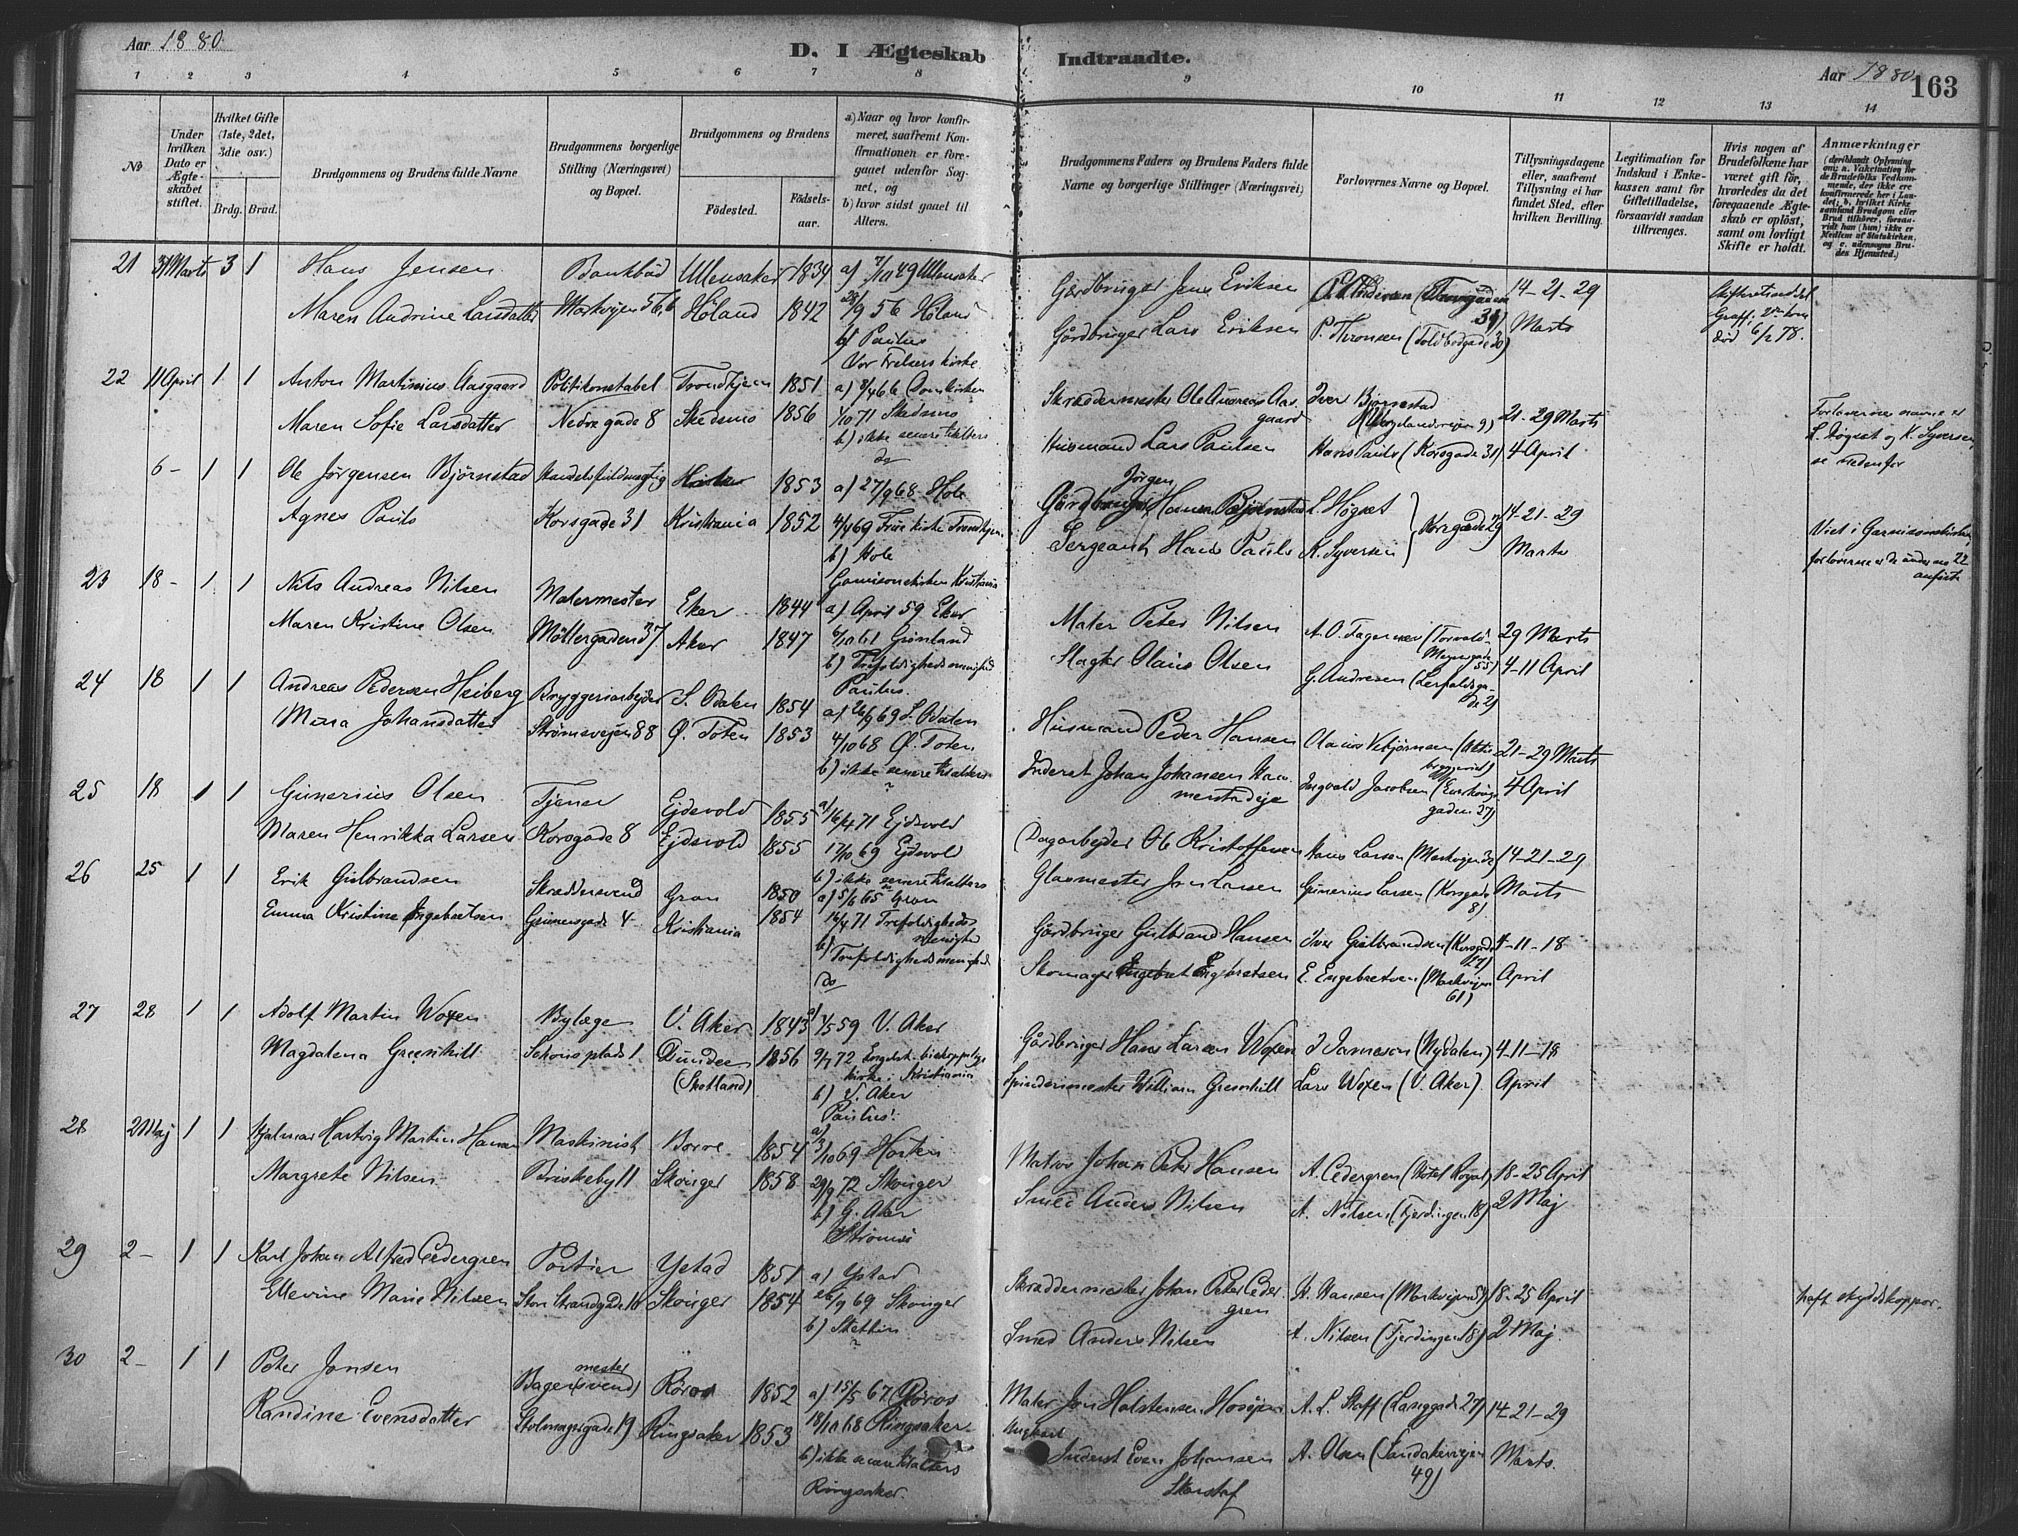 Aar 1880.
D. I Ægteskab Indtraadte.
Aar 1880.
163
1 2 3 4 5 6 7 8 9 10 11 12 13 14
No
Under hvilken Dato er Ægteskabet stiftet.
Hvilket Gifte (1ste, 2det, 3die osv.)
Brdg. Brud.
Brudgommens og Brudens fulde Navne
Brudgommens borgerlige Stilling (Næringsvei) og Bopæl.
Brudgommens og Brudens
Födested.
Födselsaar.
a) Naar og hvor konfirmeret, saafremt Konfirmationen er foregaaet udenfor Sognet, og
b) hvor sidst gaaet til Alters.
Brudgommens Faders og Brudens Faders fulde Navne og borgerlige Stillinger (Næringsvei)
Forlovernes Navne og Bopæl.
Tillysningsdagene eller, saafremt Tillysning ei har fundet Sted, efter hvilken Bevilling.
Legitimation for Indskud i Enkekassen samt for Giftetilladelse, forsaavidt saadan tiltrænges.
Hvis nogen af Brudefolkene har været gift för, hvorledes da det foregaaende Ægteskab er oplöst, samt om lovligt Skifte er holdt.
Anmærkninger
(deriblandt Oplysning om: a. Vakcination for de Brudefolks Vedkommende, der ikke ere konfirmerede her i Landet; b. hvilket Kirkesamfund Brudgom eller Brud tilhörer, forsaavidt han (hun) ikke er Medlem af Statskirken, og c. udensogns Brudes Hjemsted.)
21 31 Marts 3 1 Hans Jensen Bankbud Ullensaker 1834 a) 7/10 49 Ullensaker Gårdbruger Jens Eriksen 14-21-29
Maren Andrine Larsdatter Markvejen 56,6 Høland 1842 28/9 56 Høland Gårdbruger Lars Eriksen P. Thronsen (Toldbodgade 30) Marts død 6/2 78.
b) Paulus
Vor Frelsers kirke
22 11 April 1 1 Anton Martinius Aasgaard Politikonstabel Trondhjem 1851 a) 8/4 66 Domkirken Skræddermester Ole Andreas Aasgaard Iver Bjørnestad 21-29 Marts
Maren Sofie Larsdatter Nedregade 8 Skedsmo 1856 1/10 71 Skedsmo Husmand Lars Paulsen Hans Pauls (Korsgade 31) 4 April
b) ikke senere til alters
Forlovernes navne er L. Høgset og K. Syversen, se nedenfor
6- 1 1 Ole Jørgensen Bjørnstad Handelsfuldmægtig Hole 1853 a) 27/9 68 Hole Gårdbruger Jørgen Hansen Bjørnstad L. Høgset 14-21-29
Agnes Pauls Korsgade 31 Kristiania 1852 4/4 69 Frue kirke Trondhjem Sergeant Hans Pauls K. Syversen Korsgade 29 Marts
b) Hole
Garnisonskirken Kristiania
Viet i Garnisonskirken, forloverne er de under no 22 anførte
23 18- 1 1 Nils Andreas Nilsen Malermester Eker 1844 a) April 59 Eker Maler Peter Nilsen A. O. Fagernæs (Torvald Meyersgade 55) 29 Marts
Maren Kristine Olsen Møllergaden 37 Aker 1847 6/10 61 Grønland Slagter Olaus Olsen G. Andresen (Leufoldsgade 2) 4-11 April
b) Trefoldighedsmenighed
Paulus.
24 18 1 1 Andreas Pedersen Heiberg Bryggeriarbejder S. Odalen 1854 a) 26/9 69 S. Odalen Husmand Peder Hansen Olaus Vebjørnsen 21-29 Marts
Mina Johansdatter Strømsvejen 88 Ø. Toten 1853 4/10 68 Ø. Toten Inderst Johan Johansen Hammerstadeje Ingvald Jacobsen 4 April
b) ikke senere til alters
25 18 1 1 Gunerius Olsen Tjener Ejdsvold 1855 a) 16/4 71 Ejdsvold Dagarbejder Ole Kristoffersen Hans Larsen (Markvejen 32) 14-21-29
Maren Henrikka Larsen Korsgade 8 Ejdsvold 1855 17/10 69 Ejdsvold Glasmester Jon Larsen Gunerius Larsen (Korsgade 8) Marts
b) ikke senere til alters
26 25 1 1 Erik Gulbrandsen Skræddersvend Gran 1850 a) 5/6 65 Gran Gårdbruger Gulbrand Hansen Iver Gulbrandsen (Korsgade 17) 4-11-18
Emma Kristine Engebretsen Grünersgade 4 Kristiania 1854 16/4 71 Trefoldighedsmenighed Skomager Engebret Engebretsen E. Engebretsen (Markvejen 61) April
b) Trefoldighedsmenighed
do
27 28 1 1 Adolf Martin Woxen Bylæge V. Aker 1843 a) 1/5 59 V. Aker Gårdbruger Hans Larsen Woxen J Jameson (Nydalen) 4-11-18
Magdalena Greenhill Schousplads 1 Dundee (Skotland) 1856 9/7 72 Engelsk-biskoppelige kirke i Kristiania Spinderimester William Greenhill Lars Woxen (V. Aker) April
b) V. Aker
Paulus.
28 2 Maj 1 1 Hjalmar Hartvig Martin Hansen Maskinist Borre 1854 a) 3/10 69 Horten Matros Johan Peter Hansen A. Cedergren (Hotel Royal) 18-25 April
Margrete Nilsen Briskeby 11 Skouger 1858 29/9 72 Skouger Smed Anders Nilsen A. Nilsen (Fjerdingen 18) 2 Maj
b) G. Aker
Strømsø
29 2- 1 1 Karl Johan Alfred Cedergren Portier Ystad 1851 a) Ystad Skræddermester Johan Peter Cedergren H. Hansen (Markvejen 57) 18-25 April haft skyddskoppor.
Ellevine Marie Nilsen Store Strandgade 18 Skouger 1854 26/9 69 Skouger Smed Anders Nilsen A. Nilsen (Fjerdingen 18) 2 Maj.
b) Stettin
30 2- 1 1 Peter Jonsen Bagermester (svend) Røros 1852 a) 15/5 67 Røros Maler Jon Halstensen A. L. Staff (Langgade 27) 14-21-29
Randine Evensdatter Stolmagergade 19 Ringsaker 1853 18/10 68 Ringsaker Inderst Even Johansen Skarstad A. Olsen (Sandakerveien 49) Marts.
b) ikke senere til alters
Ringsaker.